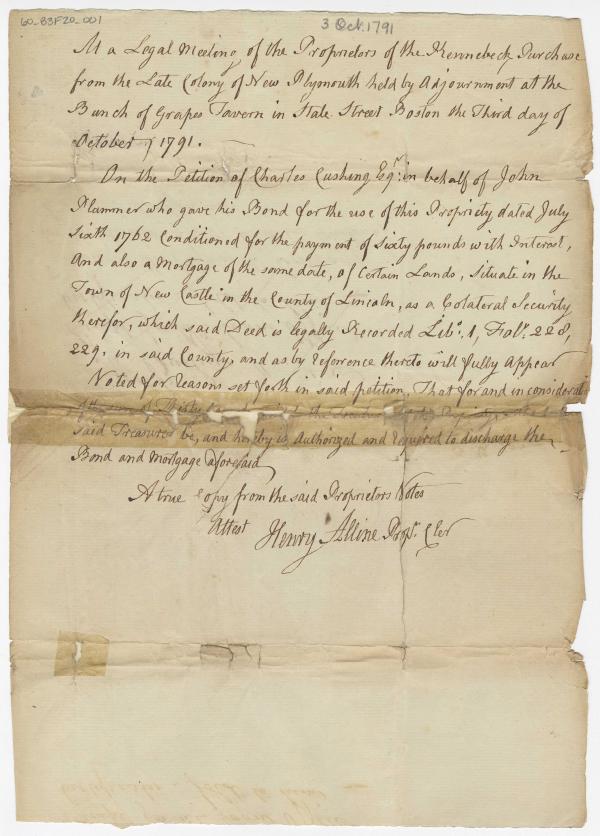 60-83F20-001
3 Oct. 1791
At a Legal Meeting of the Proprietors of the Kennebeck Purchase
from the Late Colony of New Plymouth held by Adjournment at the
Bunch of Grapes Tavern in State Street Boston the Third day of
October 1791.
On the Petition of Charles Cushing Esqr. in behalf of John
Plummer who gave his Bond for the use of this Propriety, dated July
Sixth 1762 Conditioned for the payment of Sixty pounds with Interest,
And also a Mortgage of the same date, of Certain Lands, Situate in the
Town of New Castle in the County of Lincoln, as a Colateral Security
therefor, which said Deed is legally Recorded Lib. 1, Fol. 228,
229. in said County, and as by reference thereto will fully Appear
Voted for reasons set forth in said petition, That for and in considerati
of the sum of Thirty
said Treasurer be, and hereby is Authorized and required to discharge the
Bond and Mortgage aforesaid
A true Copy from the said Proprietors Votes
Attest Henry Alline Propr. Cler